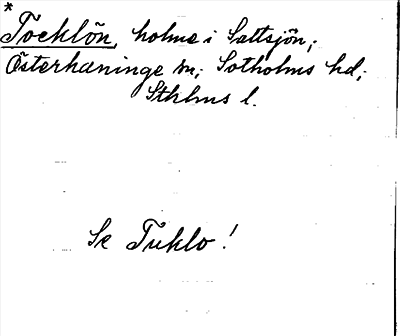 *
Tocklön, holme i Saltsjön;
Österhaninge sn; Sotholms hd;
Sthlms l.
Se Tuklo!